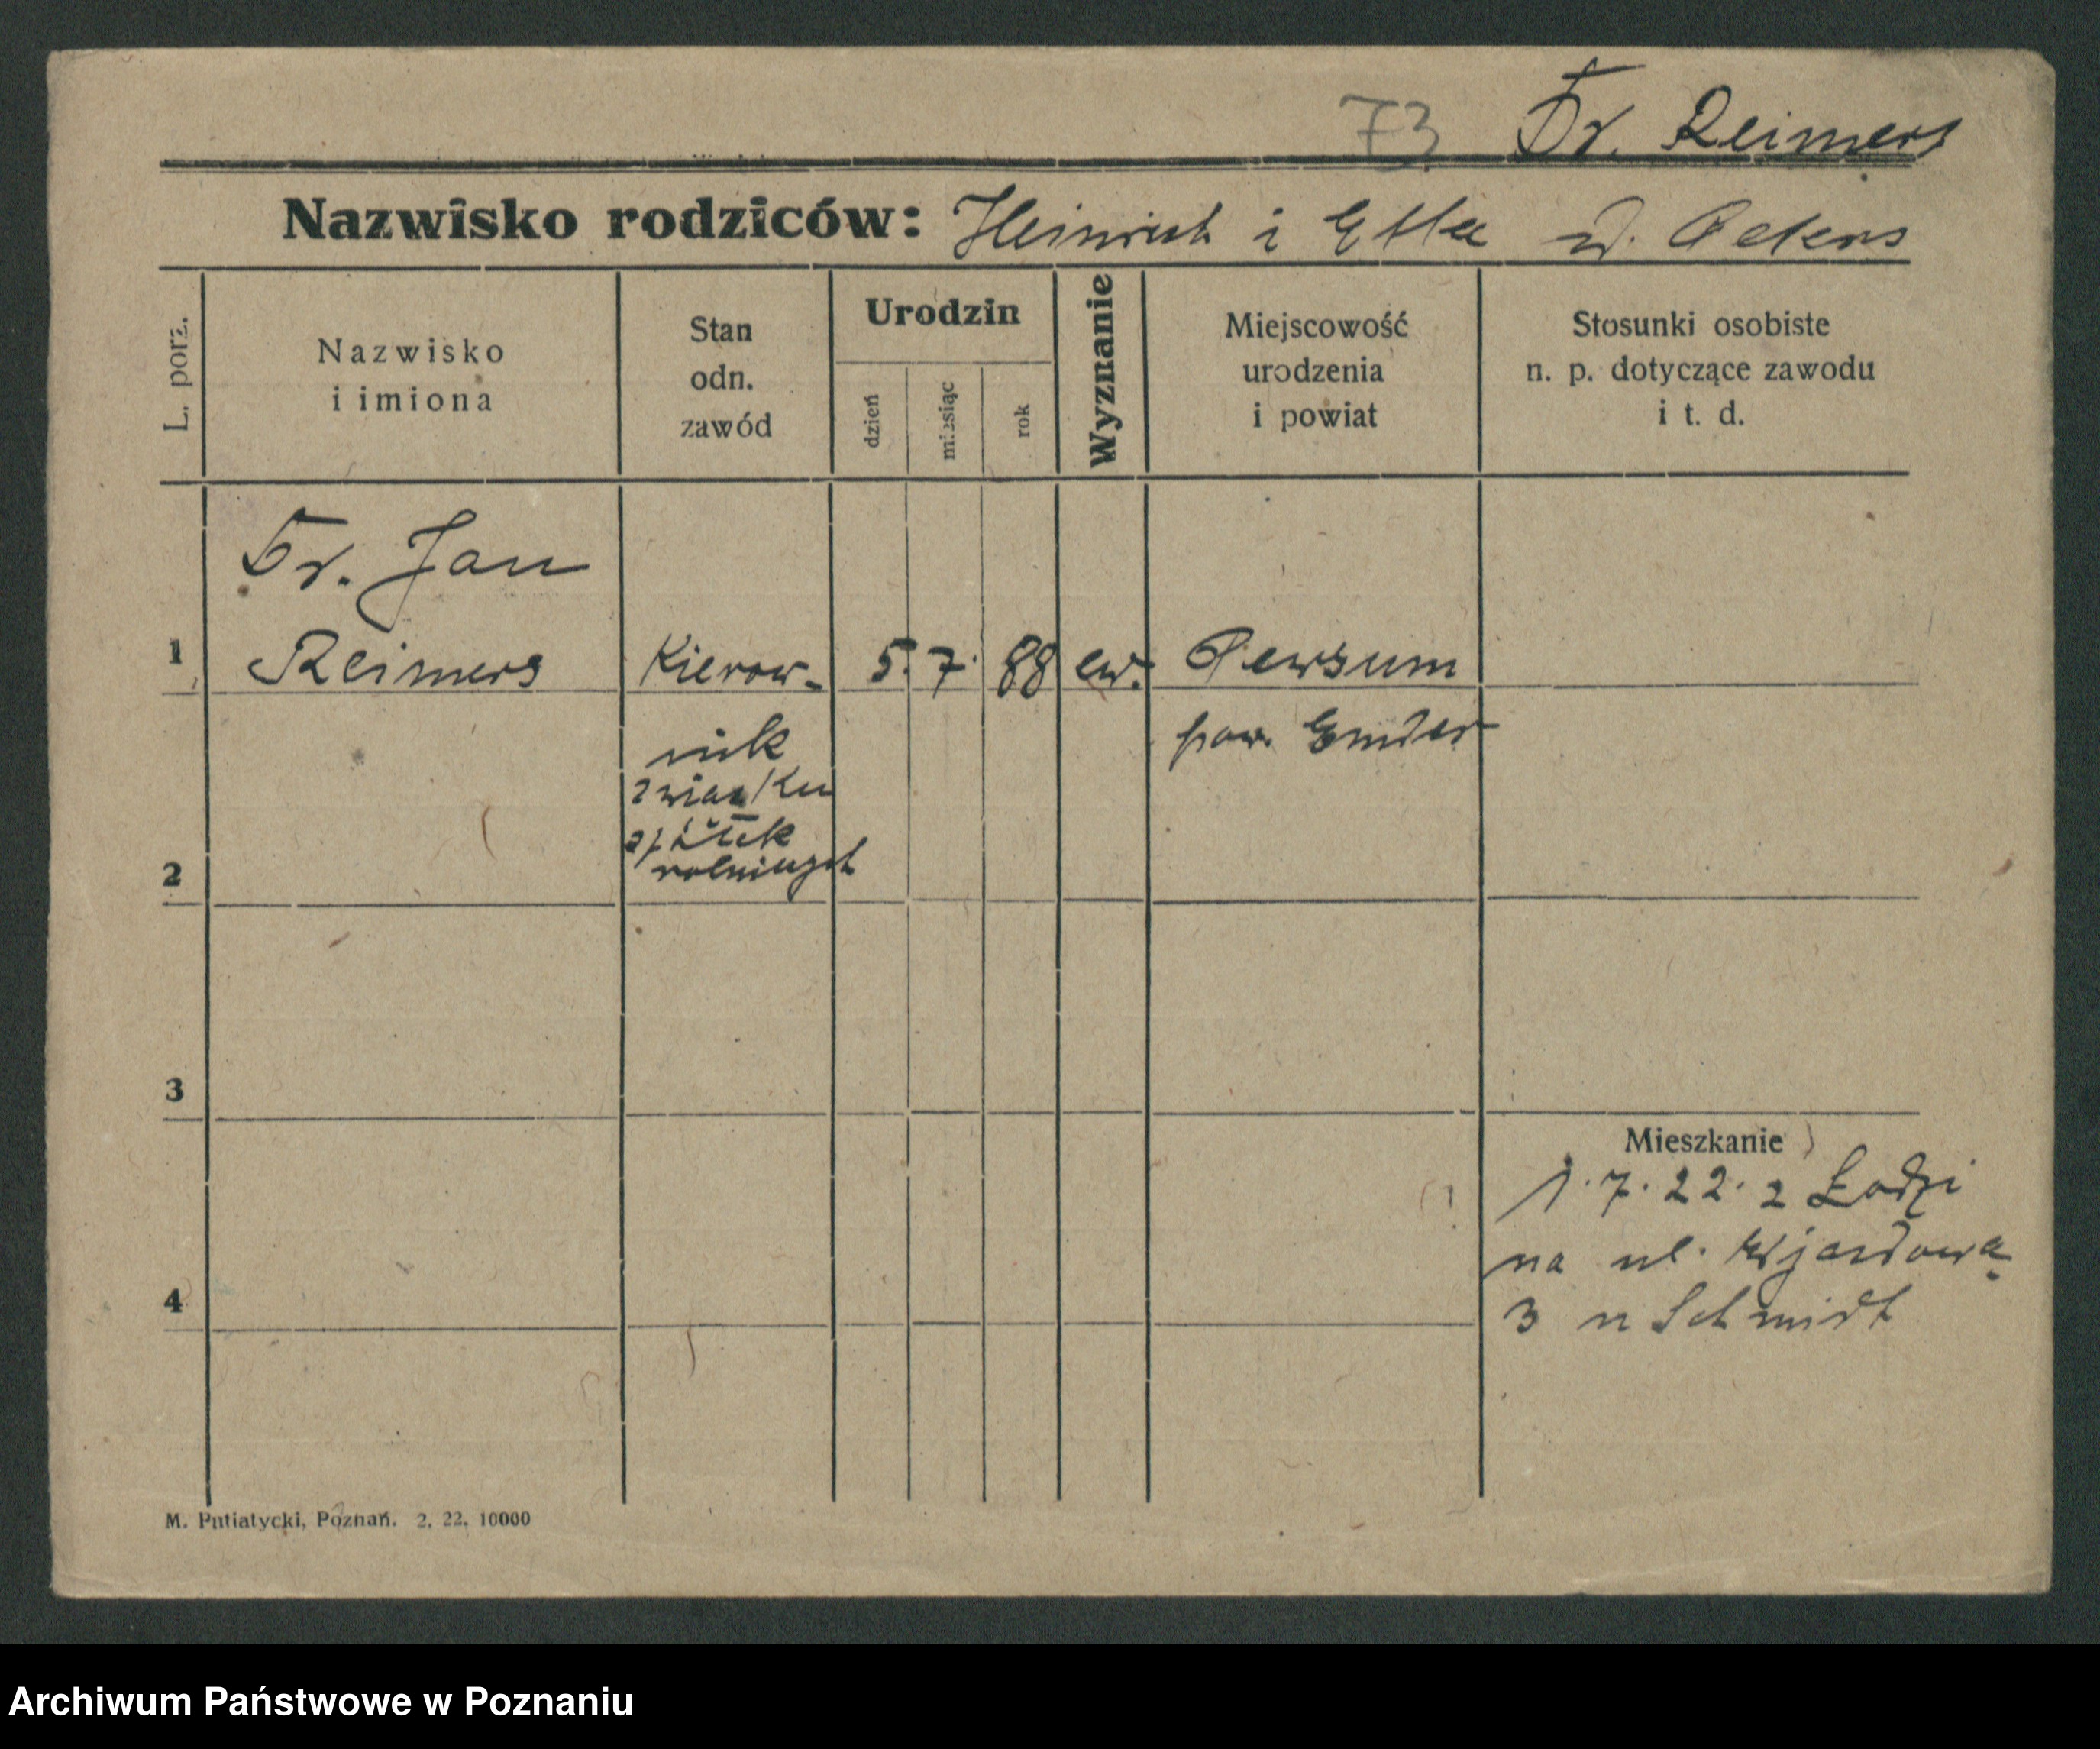 73 Dr. Reimers
Nazwisko rodziców: Heinrich i Etta d. Peters
L. porz.
Nazwisko
i imiona
Stan
odn.
zawód
Urodzin
dzień
miesiąc
rok
Wyznanie
Miejscowość
urodzenia
i powiat
Stosunki osobiste
n. p. dotyczące zawodu
i t. d.
Dr. Jan
1 Reimers Kierow- 5. 7. 88 ew. Pewsum
nik pow. Emder
związku
spółek
rolniczych
2
3
Mieszkanie
1. 7. 22. z Łodzi
na ul. Wjazdową
4
3 u Schmidt
M. Putiatycki, Poznań. 2. 22. 10000
Archiwum Państwowe w Poznaniu